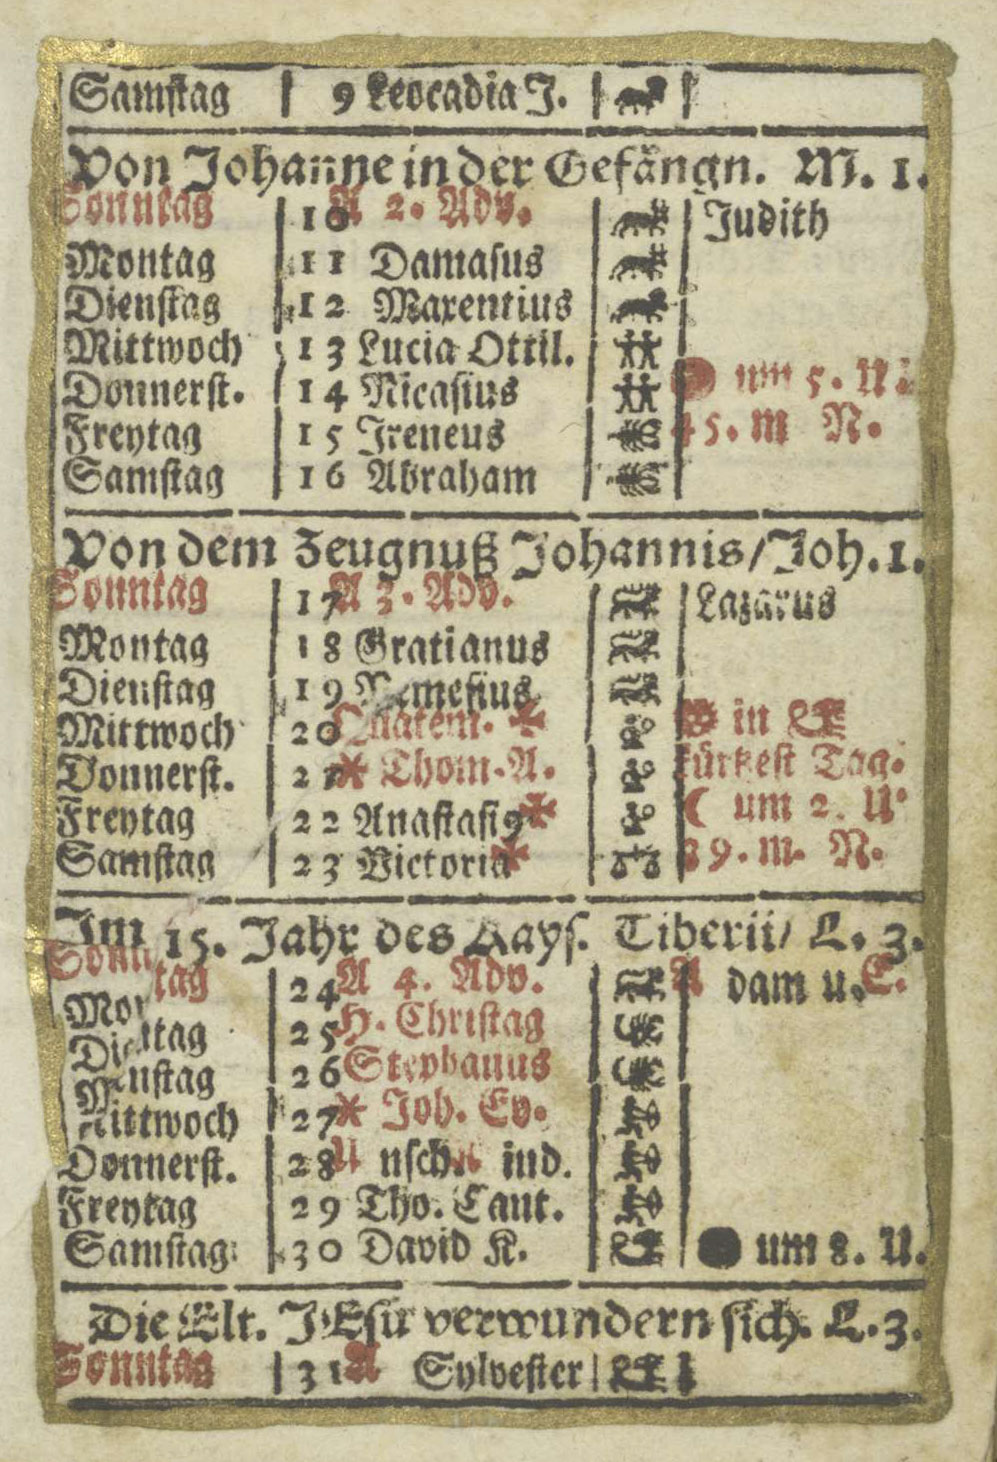 Samstag 9 Leocadia J.
Von Johanne in der Gefängn. M. 1.
Sonntag 10 A 2. Adv. Judith
Montag 11 Damasus
Dienstag 12 Maxentius
Mittwoch 13 Lucia Ottil.
Donnerst. 14 Nicasius um 5. U.
Freytag 15 Ireneus 45. m N.
Samstag 16 Abraham
Von dem Zeugnuß Johannis/Joh. 1.
Sonntag 17 A 3. Adv. Lazarus
Montag 18 Gratianus
Dienstag 19 Nemesius
Mittwoch 20 Quatem. ✠ in
Donnerst. 21 * Thom. A. kürtzest Tag.
Freytag 22 Anastasi9 ✠ ☾ um 2. U.
Samstag 23 Victoria ✠ 39. m. N.
Im 15. Jahr des Kays. Tiberii/ L. 3.
Sonntag 24 A 4. Adv. Adam u. E.
Montag 25 H. Christag
Dienstag 26 Stephanus
Mittwoch 27 * Joh. Ev.
Donnerst. 28 Unsch. Kind.
Freytag 29 Tho. Cant.
Samstag 30 David K. ● um 8. U.
Die Elt. JEsu verwundern sich. L. 3.
Sonntag 31 A Sylvester